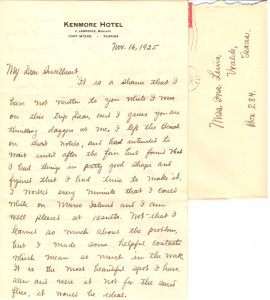 KENMORE HOTEL
FORT MYERS FLORIDA
Nov. 16, 1925
My Dear Sweetheart
It is a shame that I
have not written to you while I was
on this trip Dear and I guess you are
thinking daggers at me. I left the Beach
on short notice, and had intended to
wait until after the fair but found that
I had things in pretty good shape and
figured that I had time to make it.
I worked every minute that I could
while on Marco Island and I am
well pleased at results. Not that I
learned so much about the problem,
but I made some helpful contacts
which mean so much in the work.
It is the most beautiful spot I have
seen and were it not for the sand
flies, it would be ideal.
Miss Ima Lewis,
Uvalde,
Texas.
Box 284.